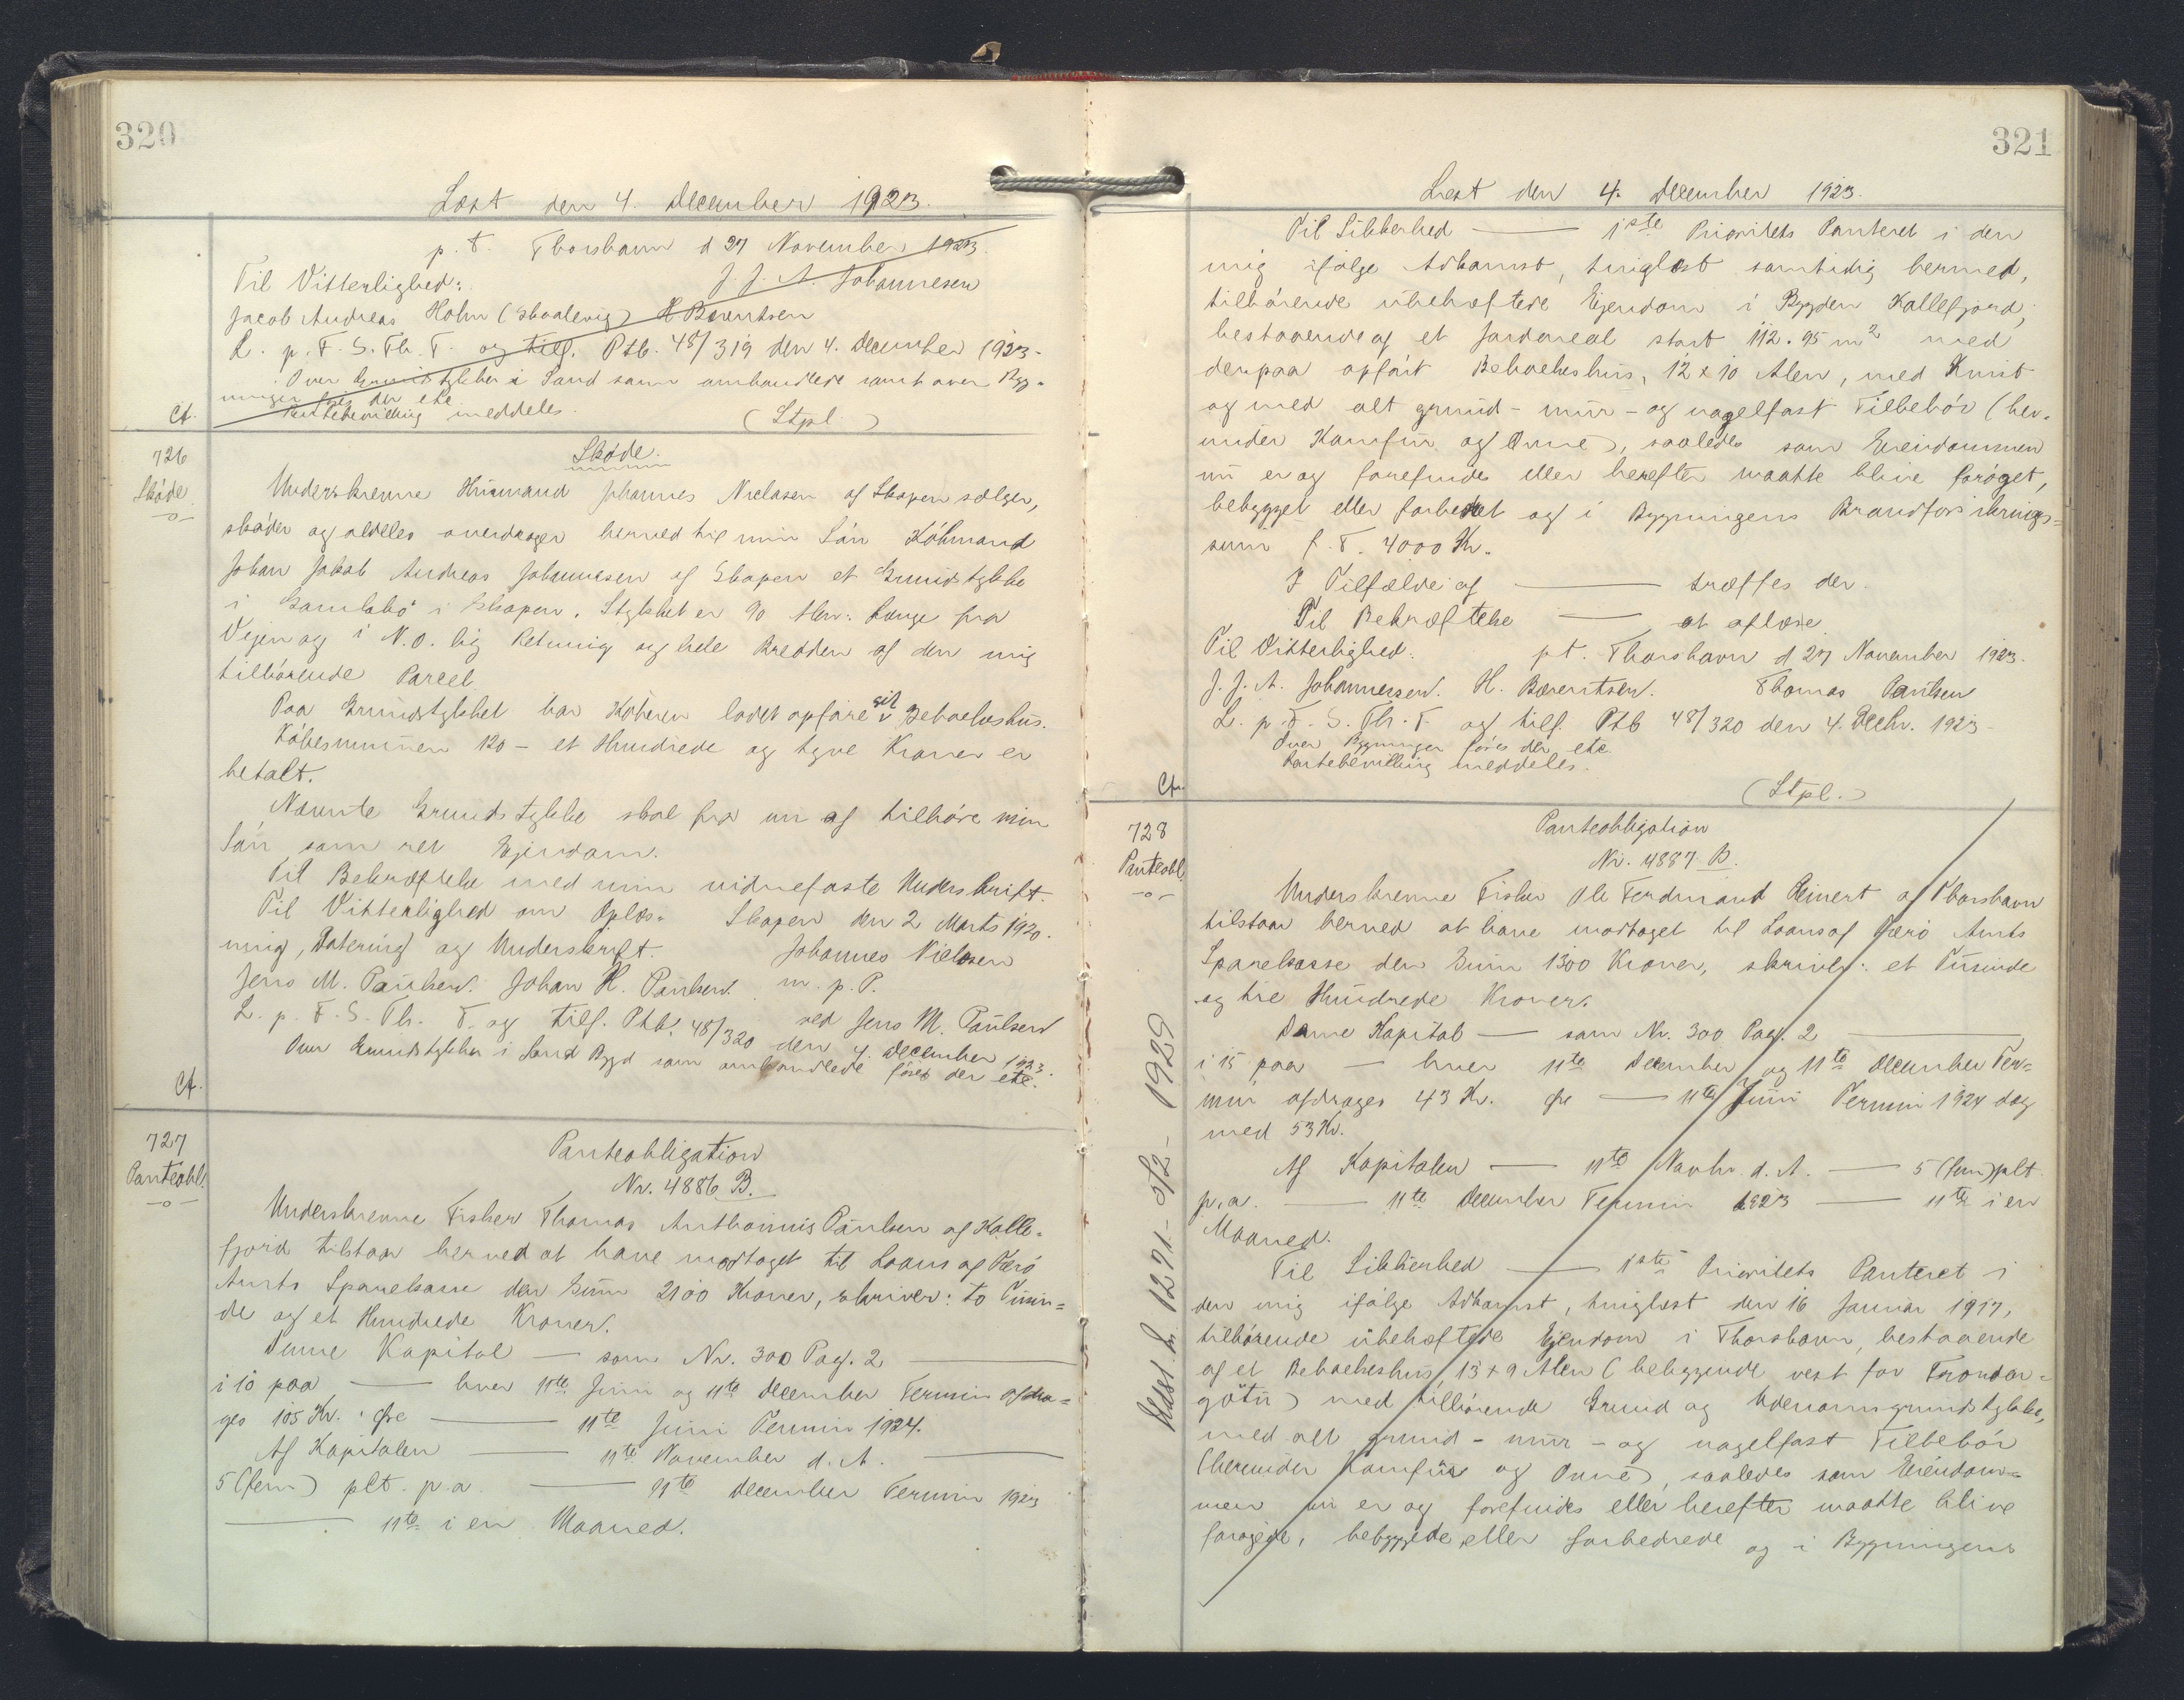 320
Læst den 4. December 1923.
p. t. Thorshavn d 27 November 1923.
Til Vitterlighed: J. J. A. Johannesen
Jacob Andreas Holm (Skaalevig) H Bærentsen
L. p. F. S. Th. T. og tilf. Ptb. 48/319 den 4. December 1923.
Over Grundstykker i Sand som ombandlede samt over Byg-
ninger føres der etc.
Pantebevilling meddeles. (Stpl.)
Cf.
726
Skøde
-o-
Skøde.
Underskrevne Husmand Johannes Nielasen af Skopen sælger,
skøder og aldeles overdrager herved til min Søn Købmand
Johan Jakob Andreas Johannesen af Skopen et Grundstykke
i Gamlabø i Skopen. Stykket er 90 Alen: længe fra
Vejen og i N.O. lig Retning og hele Bredden af den mig
tilhørende Parcel
Paa Grundstykket har Køberen ladet opføre sit Beboelseshus.
Købesummen 120 - et Hundrede og tyve Kroner er
betalt.
Nævnte Grundstykke skal fra nu af tilhøre min
Søn som ret Ejendom.
Til Bekræftelse med min vidnefaste Underskrift.
Til Vitterlighed om Oplæs- Skopen den 2 Marts 1920.
ning, Datering og Underskrift. Johannes Nielasen
Jens M. Paulsen. Johan H. Paulsen. m. p. P.
ved Jens M. Paulsen
L. p. F. S. Th. T. og tilf. Ptb. 48/320 den 4. December 1923.
Over Grundstykker i Sand Bygd som ombandlede føres der etc.
Cf.
727
Panteobl.
-o-
Panteobligation
Nr. 4886 B.
Underskrevne Fisker Thomas Anthonius Paulsen af Kolle-
fjord tilstaar herved at have modtaget til Laans af Færø
Amts Sparekasse den Sum 2100 Kroner, skriver: to Tusin-
de og et Hundrede Kroner.
Denne Kapital — som Nr. 300 Pag. 2 —
i 10 paa — hver 11te Juni og 11te December Termin afdra-
ges 105 Kr. Øre — 11te Juni Termin 1924.
Af Kapitalen — 11te November d. A. —
5 (fem) pct. p.a. — 11te December Termin 1923
— 11te i en Maaned.
321
Læst den 4. December 1923.
Til Sikkerhed — 1ste Prioritets Panteret i den
mig ifølge Adkomst, tinglæst samtidig hermed,
tilhørende ubehæftede Ejendom i Bygden Kollefjord,
bestaaende af et Jordareal stort 112.95 m2 med
derpaa opført Beboelseshus, 12 x 10 Alen, med Kvist
og med alt grund- mur- og nagelfast Tilbehør (her-
under Komfur og Ovne), saaledes som Eiendommen
nu er og forefindes eller herefter maatte blive forøget,
bebygget eller forbedret og i Bygningens Brandforsikrings-
sum f. T. 4000 Kr.
I Tilfælde af — træffes der.
Til Bekræftelse — at oplæse
Til Vitterlighed. pt. Thorshavn d 27 November 1923.
J. J. A. Johannesen. H. Bærentsen. Thomas Paulsen
L. p. F. S. Th. T. og tilf. Ptb 48/320 den 4. Decbr. 1923
Over Bygninger føres der etc.
Pantebevilling meddeles.
Cf.
(Stpl.)
728
Panteobl.
-o-
Panteobligation
Nr. 4887 B.
Underskrevne Fisker Ole Ferdinand Reinert af Thorshavn
tilstaar herved at have modtaget til Laans af Færø Amts
Sparekasse den Sum 1300 Kroner, skriver: et Tusinde
og tre Hundrede Kroner.
Denne Kapital — som Nr. 300 Pag. 2 —
i 15 paa — hver 11te December og 11te December Ter-
min afdrages 43 Kr. Øre — 11te Juni Termin 1924 dog
med 53 Kr.
Af Kapitalen — 11te Novbr. d. A. — 5 (fem) pct.
p.a. — 11te December Termin 1923 — 11te i en
Maaned.
Til Sikkerhed — 1ste Prioritets Panteret i
den mig ifølge Adkomst, tinglæst den 16 Januar 1917,
tilhørende ubehæftede Ejendom i Thorshavn, bestaaende
af et Beboelseshus, 13 x 9 Alen (beliggende vest for Tróndar-
gøtu) med tilhørende Grund og Udenomsgrundstykke,
med alt grund- mur- og nagelfast Tilbehør
(herunder Komfur og Ovne), saaledes som Eiendom-
men nu er og forefindes eller herefter maatte blive
forøgede, bebyggede eller forbedrede og i Bygningens
1929